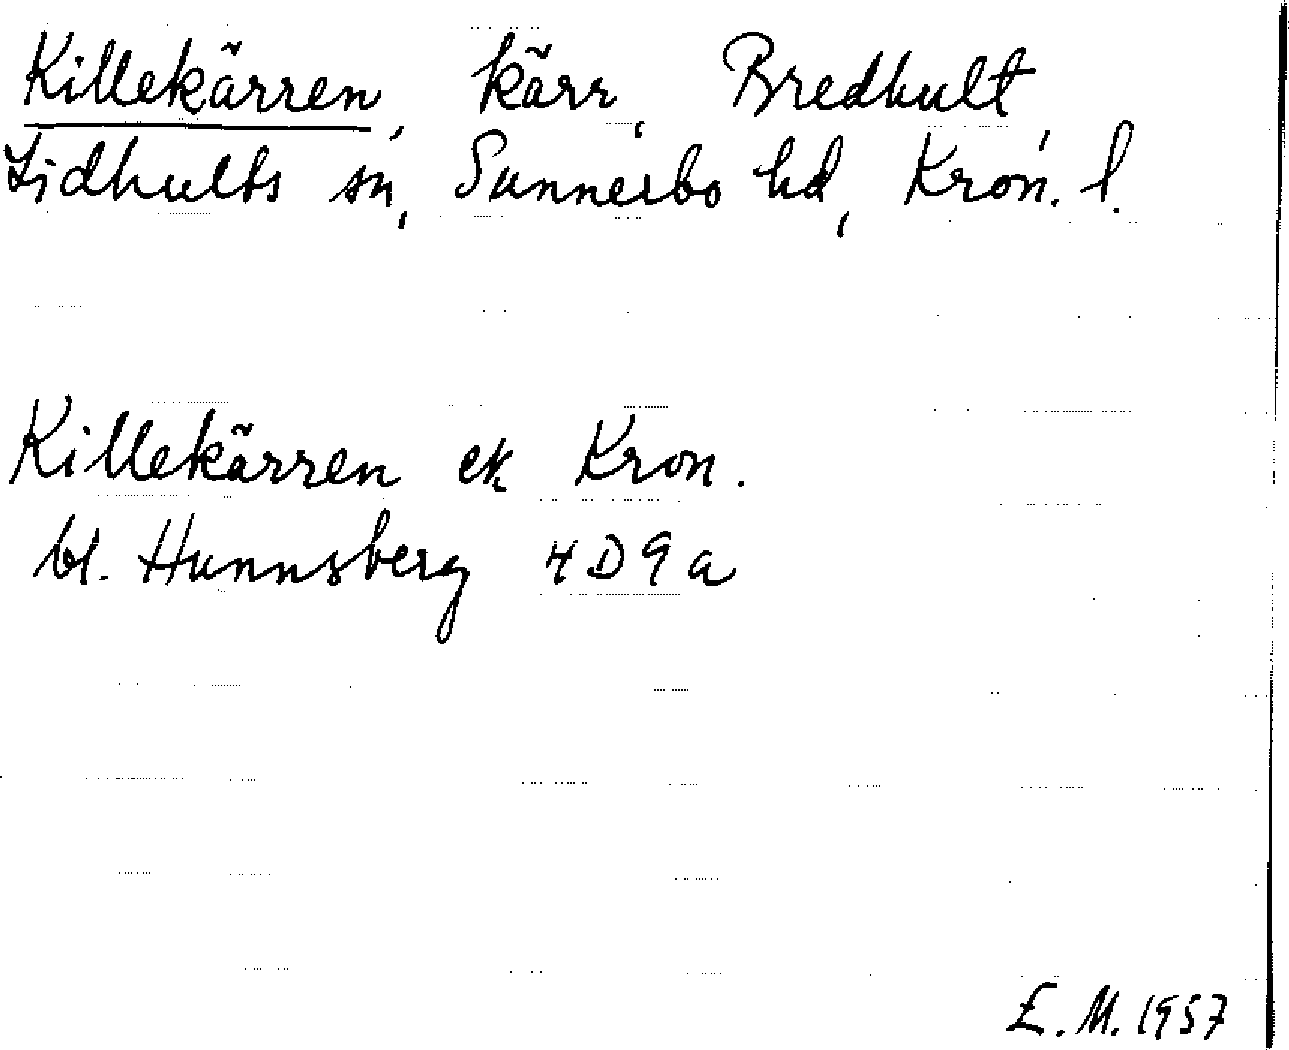 Killekärren, kärr, Bredhult,
Lidhults sn, Sunnerbo hd, Kron. l.
Killekärren ek Kron.
bl. Hunnsberg 4D9a
E. M. 1957